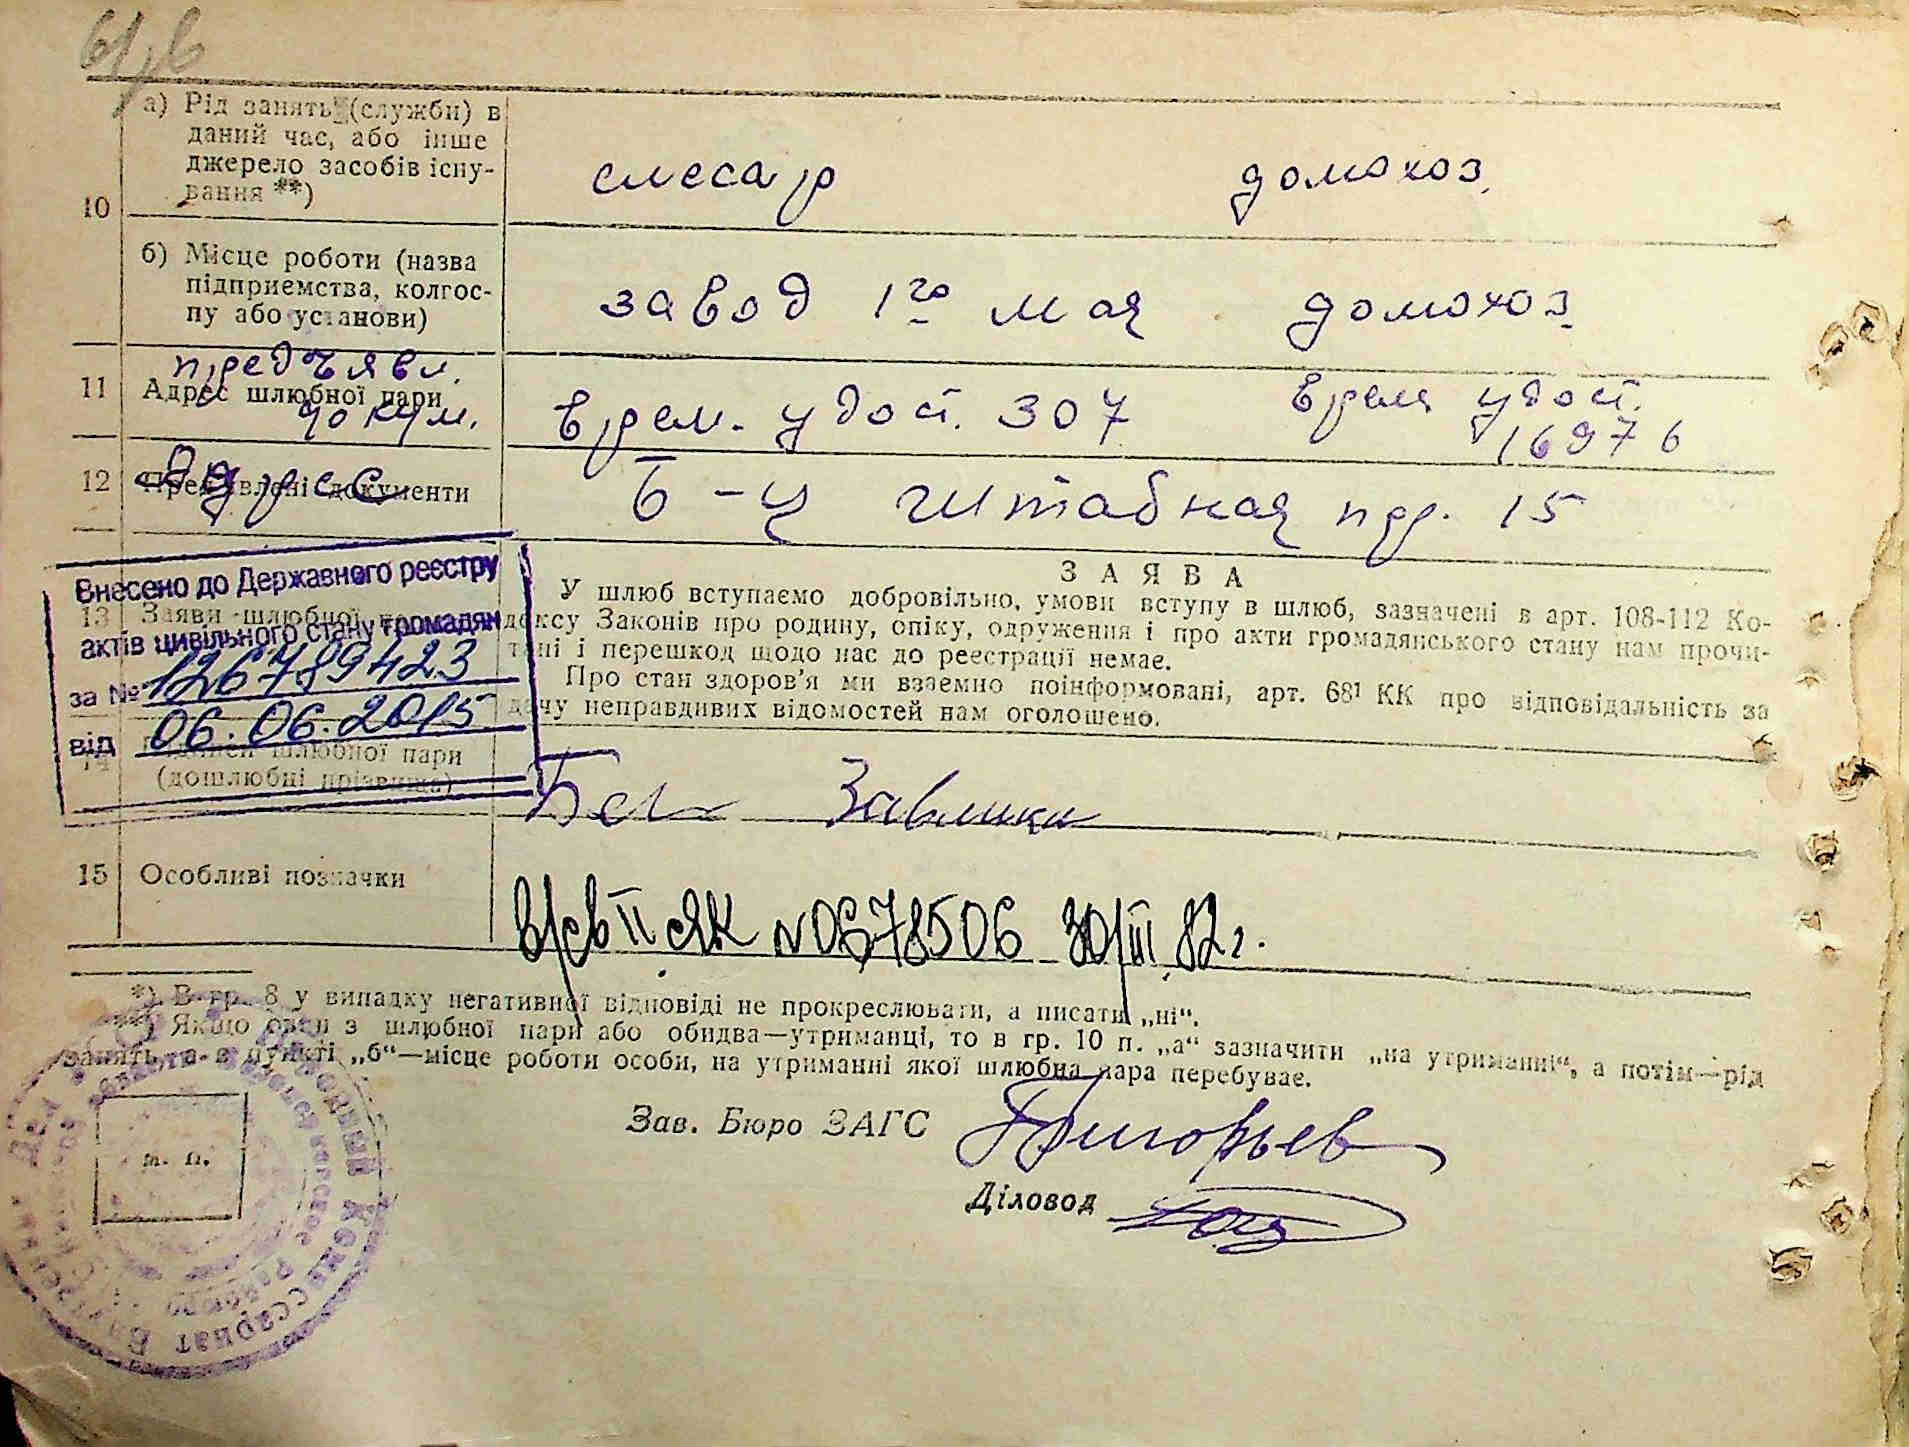 а) Рід занять (служби) в
даний час, або інше
джерело засобів існу-
вання **)
10
слесар домохоз.
б) Місце роботи (назва
підприємства, колгос-
пу або установи)
завод 1го мая домохоз.
предъявл.
11 Адрес шлюбної пари
докум.
врем. удост. 307 времен удост.
16976
12 Пред'явлені документи
Адрес
Б-ц Штабная пр. 15
Внесено до Державного реєстру
актів цивільного стану громадян
за № 126789423
від 06.06.2015
13 Заяви шлюбної
З А Я В А
У шлюб вступаємо добровільно, умови вступу в шлюб, зазначені в арт. 108-112 Ко-
дексу Законів про родину, опіку, одруження і про акти громадянського стану нам прочи-
тані і перешкод щодо нас до реєстрації немає.
Про стан здоров'я ми взаємно поінформовані, арт. 68¹ КК про відповідальність за
дачу неправдивих відомостей нам оголошено.
14 шлюбної пари
(дошлюбні прізвища)
15 Особливі позначки
в/св II ЯК №0678506 30/III 82г.
*) В гр. 8 у випадку негативної відповіді не прокреслювати, а писати „ні“.
**) Якщо один з шлюбної пари або обидва—утриманці, то в гр. 10 п. „а“ зазначити „на утриманні“, а потім—рід
занять, а в пункті „б“—місце роботи особи, на утриманні якої шлюбна пара перебуває.
Зав. Бюро ЗАГС Григорьев
Діловод
м. п.